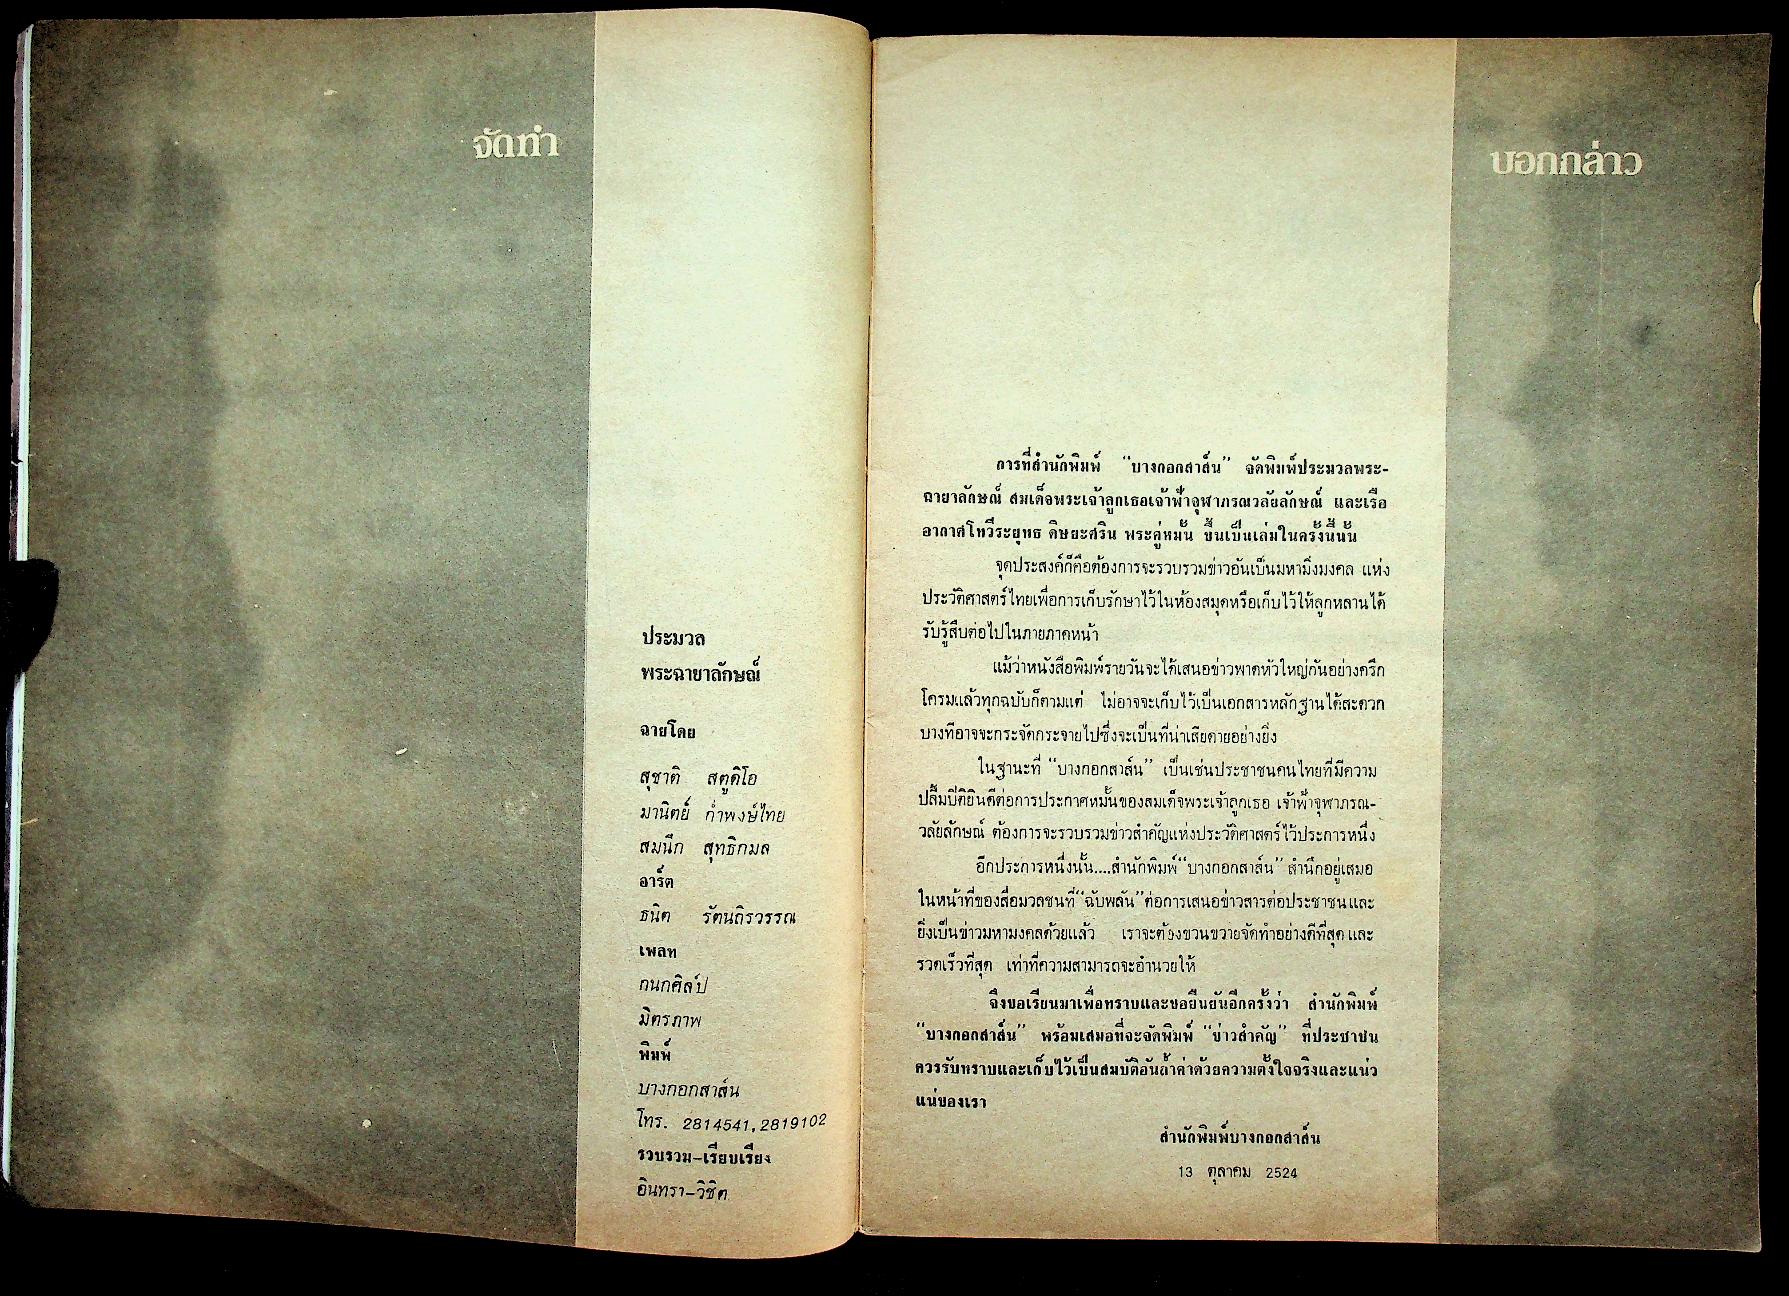 จัดทำ
ประมวล
พระฉายาลักษณ์
ฉายโดย
สุชาติ สตูดิโอ
มานิตย์ ก่ำพงษ์ไทย
สมนึก สุทธิกมล
อาร์ต
ธนิต รัตนถิรวรรณ
เพลท
กนกศิลป์
มิตรภาพ
พิมพ์
บางกอกสาส์น
โทร. 2814541, 2819102
รวบรวม-เรียบเรียง
อินทรา-วิชิต
บอกกล่าว
การที่สำนักพิมพ์ “บางกอกสาส์น” จัดพิมพ์ประมวลพระ-
ฉายาลักษณ์ สมเด็จพระเจ้าลูกเธอเจ้าฟ้าจุฬาภรณวลัยลักษณ์ และเรือ
อากาศโทวีระยุทธ ดิษยะศริน พระคู่หมั้น ขึ้นเป็นเล่มในครั้งนี้นั้น
จุดประสงค์ก็คือต้องการจะรวบรวมข่าวอันเป็นมหามิ่งมงคล แห่ง
ประวัติศาสตร์ไทยเพื่อการเก็บรักษาไว้ในห้องสมุดหรือเก็บไว้ให้ลูกหลานได้
รับรู้สืบต่อไปในภายภาคหน้า
แม้ว่าหนังสือพิมพ์รายวันจะได้เสนอข่าวพาดหัวใหญ่กันอย่างครึก
โครมแล้วทุกฉบับก็ตามแต่ ไม่อาจจะเก็บไว้เป็นเอกสารหลักฐานได้สะดวก
บางทีอาจจะกระจัดกระจายไปซึ่งจะเป็นที่น่าเสียดายอย่างยิ่ง
ในฐานะที่ “บางกอกสาส์น” เป็นเช่นประชาชนคนไทยที่มีความ
ปลื้มปิติยินดีต่อการประกาศหมั้นของสมเด็จพระเจ้าลูกเธอ เจ้าฟ้าจุฬาภรณ-
วลัยลักษณ์ ต้องการจะรวบรวมข่าวสำคัญแห่งประวัติศาสตร์ไว้ประการหนึ่ง
อีกประการหนึ่งนั้น....สำนักพิมพ์ “บางกอกสาส์น” สำนึกอยู่เสมอ
ในหน้าที่ของสื่อมวลชนที่ “ฉับพลัน” ต่อการเสนอข่าวสารต่อประชาชนและ
ยิ่งเป็นข่าวมหามงคลด้วยแล้ว เราจะต้องขวนขวายจัดทำอย่างดีที่สุดและ
รวดเร็วที่สุด เท่าที่ความสามารถจะอำนวยให้
จึงขอเรียนมาเพื่อทราบและขอยืนยันอีกครั้งว่า สำนักพิมพ์
“บางกอกสาส์น” พร้อมเสมอที่จะจัดพิมพ์ “ข่าวสำคัญ” ที่ประชาชน
ควรรับทราบและเก็บไว้เป็นสมบัติอันล้ำค่าด้วยความตั้งใจจริงและแน่ว
แน่ของเรา
สำนักพิมพ์บางกอกสาส์น
13 ตุลาคม 2524